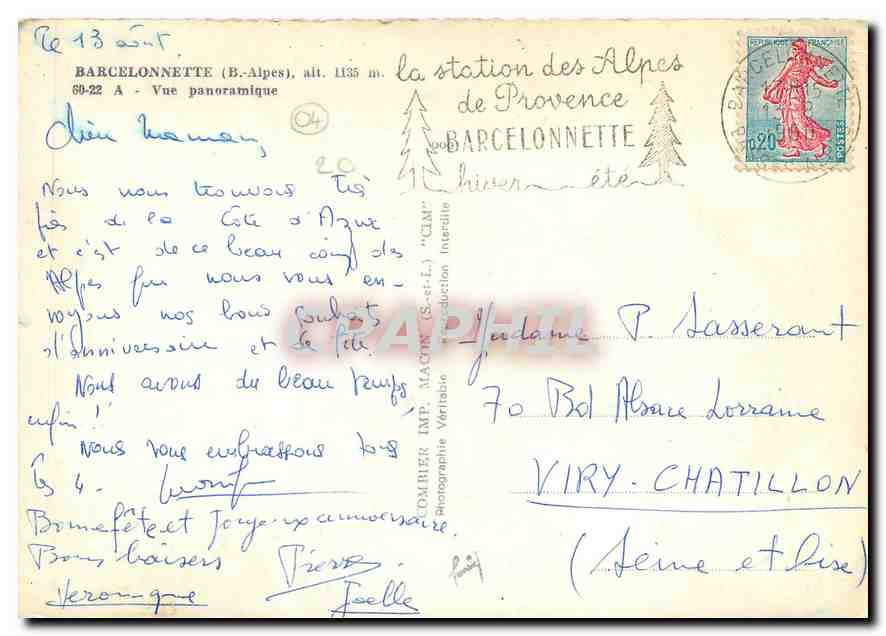 le 13 août
BARCELONNETTE (B.-Alpes), alt. 1135 m.
60-22 A - Vue panoramique
Chère Maman,
04
20
Nous nous trouvons très
près de la Côte d'Azur
et c'est de ce beau coin des
Alpes que nous vous en-
voyons nos bons souhaits
d'anniversaire et de fête.
Nous avons du beau temps
enfin !
Nous vous embrassons tous
les 4.
Bonne fête et joyeux anniversaire
Bons baisers Pierre
Veronique Joelle
la station des Alpes
de Provence
BARCELONNETTE
hiver été
REPUBLIQUE FRANÇAISE
0,20
POSTES
COMBIER IMP. MACON (S.-et-L.) "CIM"
Photographie Véritable - Reproduction Interdite
CPAPHIL
Madame P. Sasserant
70 Bd Alsace Lorraine
VIRY-CHATILLON
(Seine et Oise)